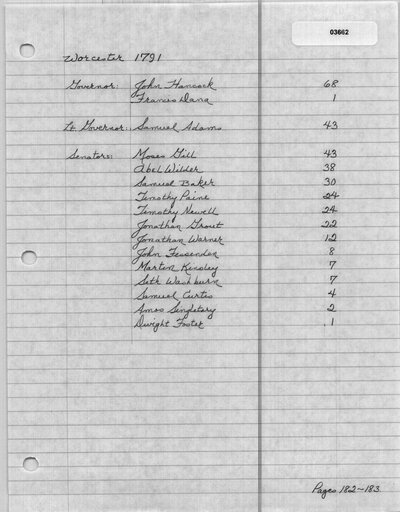 03662
Worcester 1791
Governor: John Hancock 68
Francis Dana 1
Lt. Governor: Samuel Adams 43
Senators: Moses Gill 43
Abel Wilder 38
Samuel Baker 30
Timothy Paine 24
Timothy Newell 24
Jonathan Grout 22
Jonathan Warner 12
John Fessenden 8
Martin Kinsley 7
Seth Washburn 7
Samuel Curtis 4
Amos Singletary 2
Dwight Foster 1
Pages 182-183